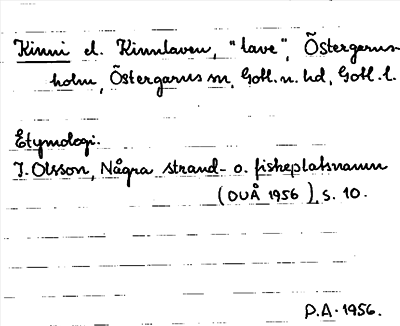 Kinni el. Kinnlaven, "lave", Östergarns-
holm, Östergarns sn, Gotl. n. hd, Gotl. l.
Etymologi.
I. Olsson, Några strand- o. fiskeplatsnamn
(OUÅ 1956), s. 10.
P.A. 1956.